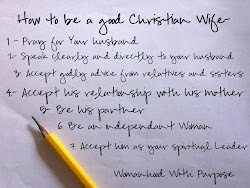 How to be a good Christian Wife-
1- Pray for Your husband
2- Speak clearly and directly to your husband
3- Accept godly advice from relatives and sisters
4- Accept his relationship with his mother
5- Be his partner
6 Be an independant Woman
7 Accept him as your spiritual Leader
Womanhood With Purpose